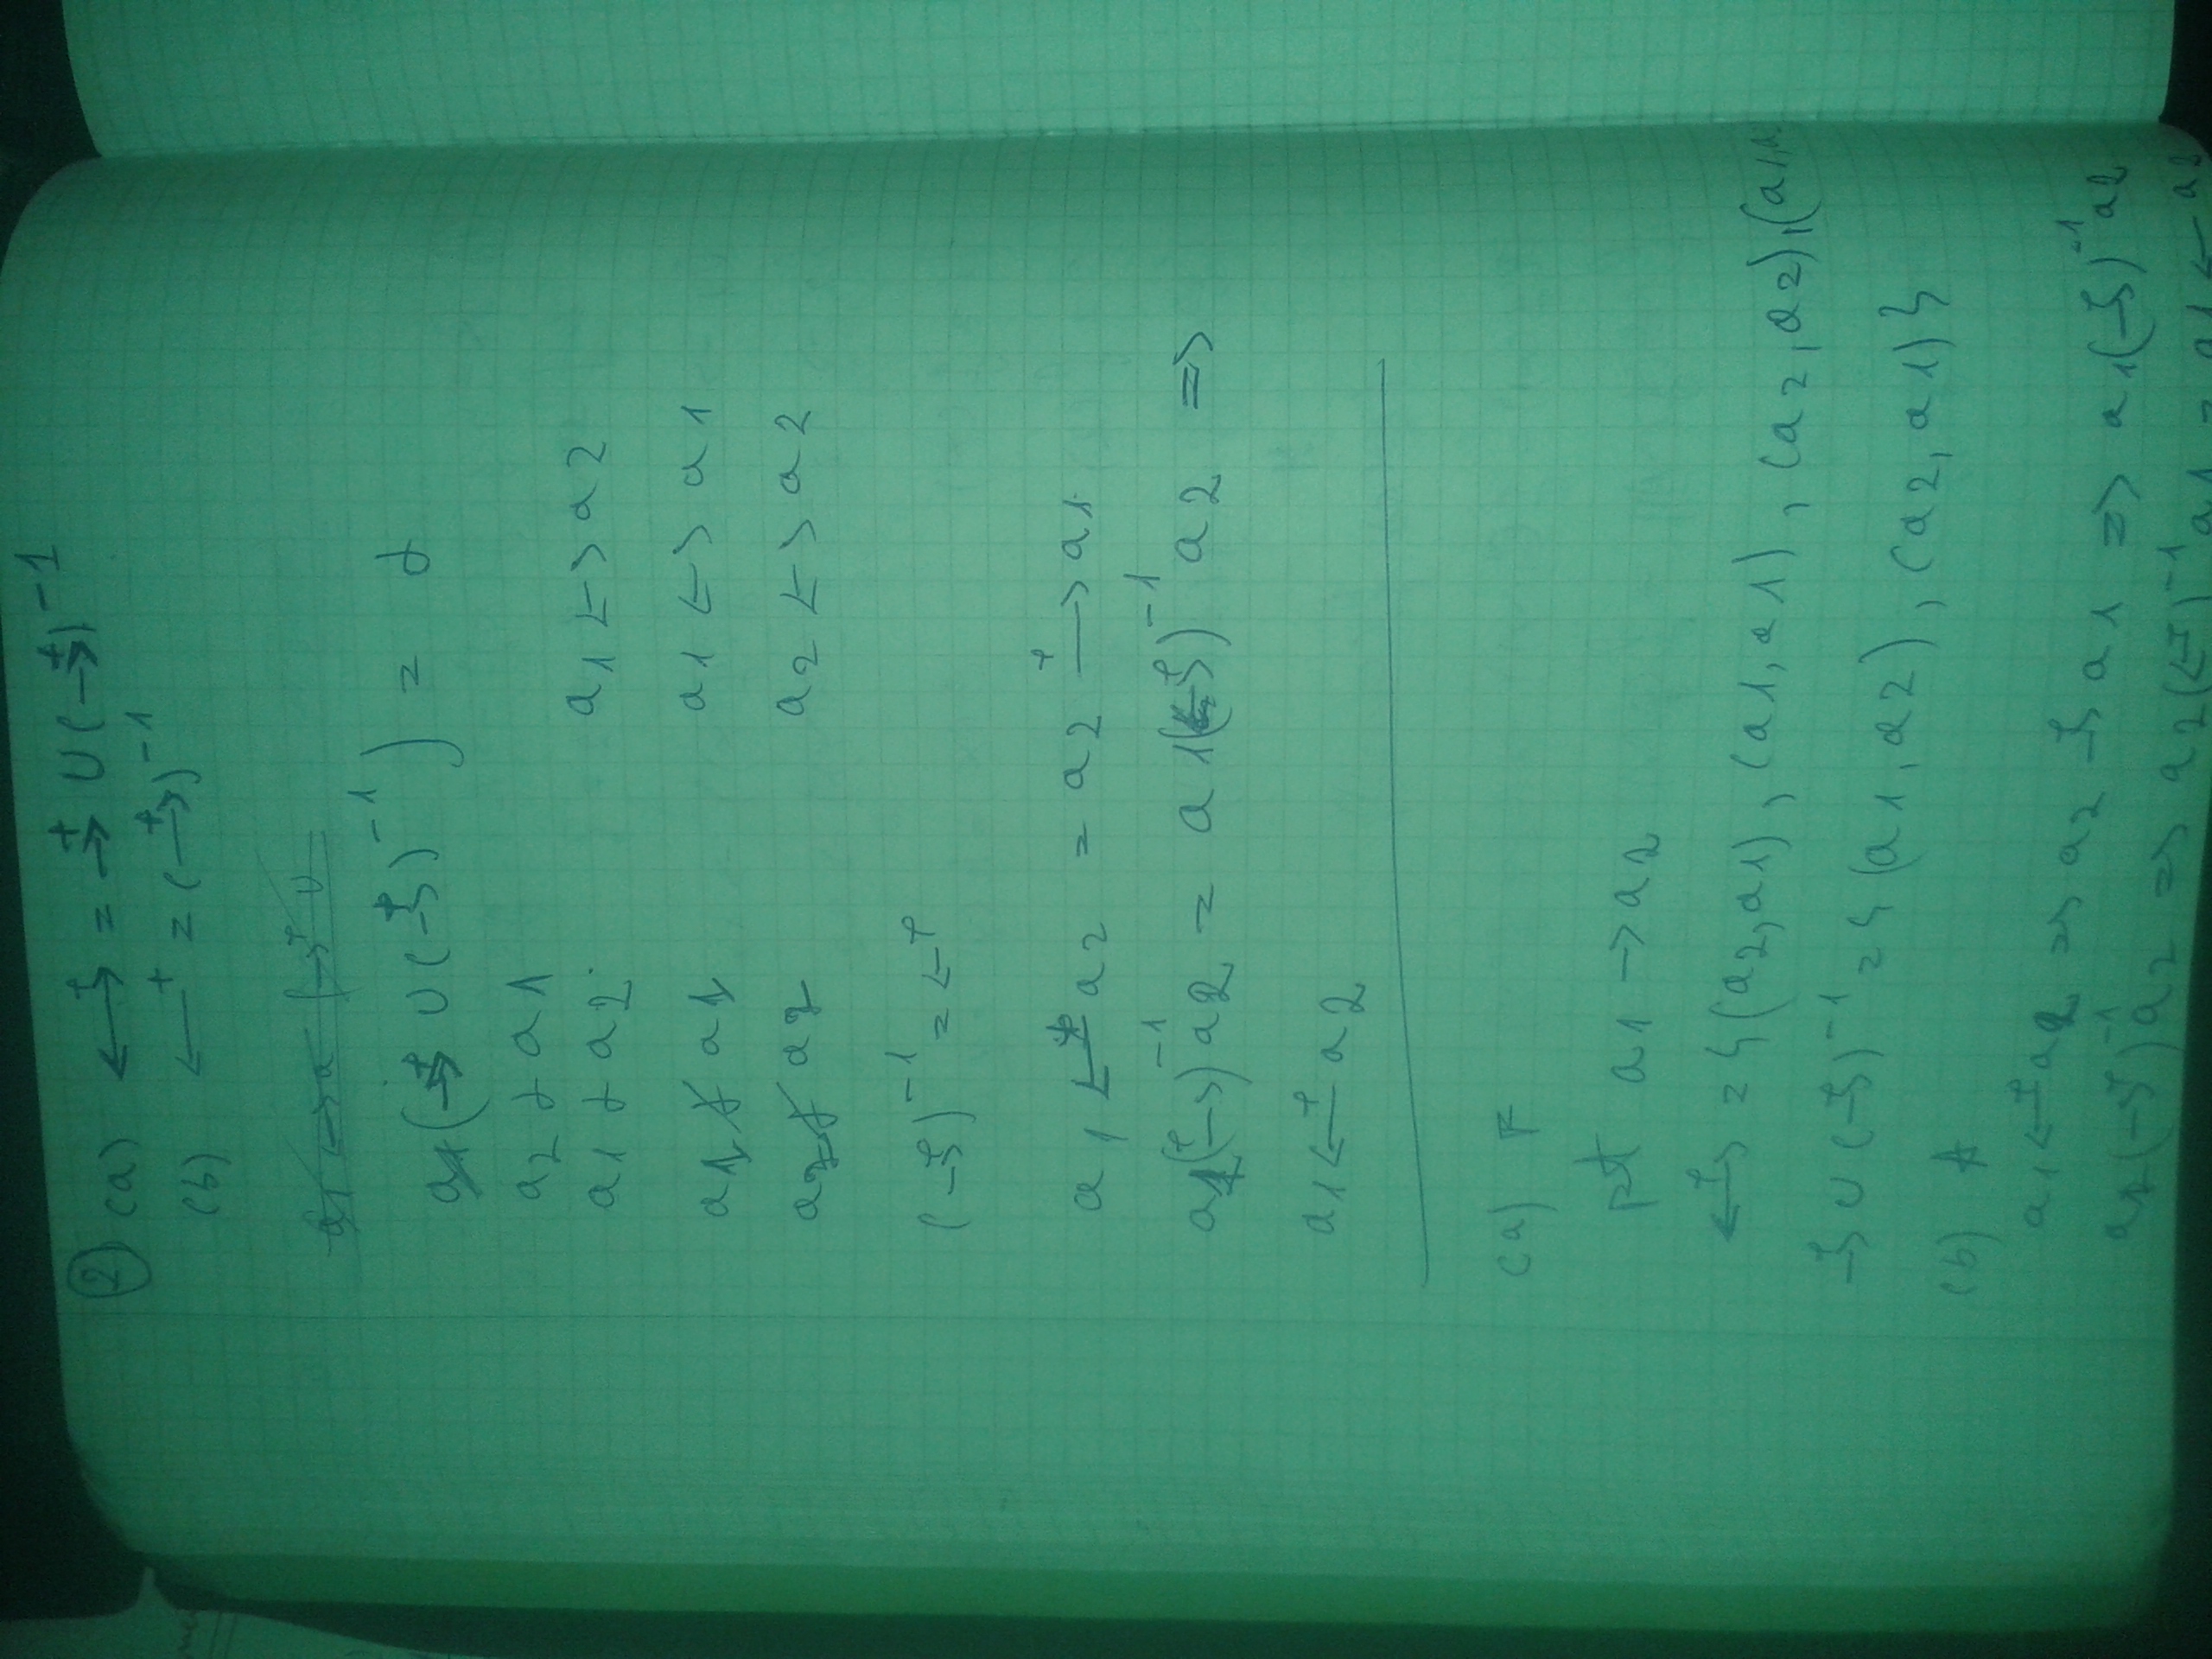 ② (a) ⟷⁺ = →⁺ ∪ (→⁺)⁻¹
(b) ⟵⁺ = (→⁺)⁻¹
(→⁺ ∪ (→⁺)⁻¹) = γ
a2 γ a1
a1 γ a2 a1 ↔ a2
a1 γ̸ a1 a1 ↔ a1
a2 γ̸ a2 a2 ↔ a2
(→⁺)⁻¹ = ←⁺
a1 ←⁺ a2 = a2 →⁺ a1
a1 (→⁺)⁻¹ a2 = a1 (→⁺)⁻¹ a2 =>
a1 ←⁺ a2
(a) F
pt a1 → a2
↔⁺ = {(a2, a1), (a1, a1), (a2, a2), (a1,
→⁺ ∪ (→⁺)⁻¹ = {(a1, a2), (a2, a1)}
(b) A
a1 ←⁺ a2 => a2 →⁺ a1 => a1 (→⁺)⁻¹ a2
a1 (→⁺)⁻¹ a2 => a2 (←⁺)⁻¹ a1 = a1 ← a2